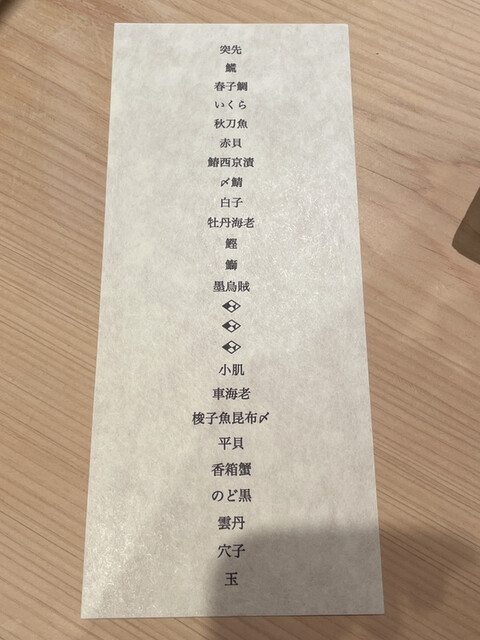 突先
鱵
春子鯛
いくら
秋刀魚
赤貝
鰆西京漬
〆鯖
白子
牡丹海老
鰹
鰤
墨烏賊
小肌
車海老
梭子魚昆布〆
平貝
香箱蟹
のど黒
雲丹
穴子
玉